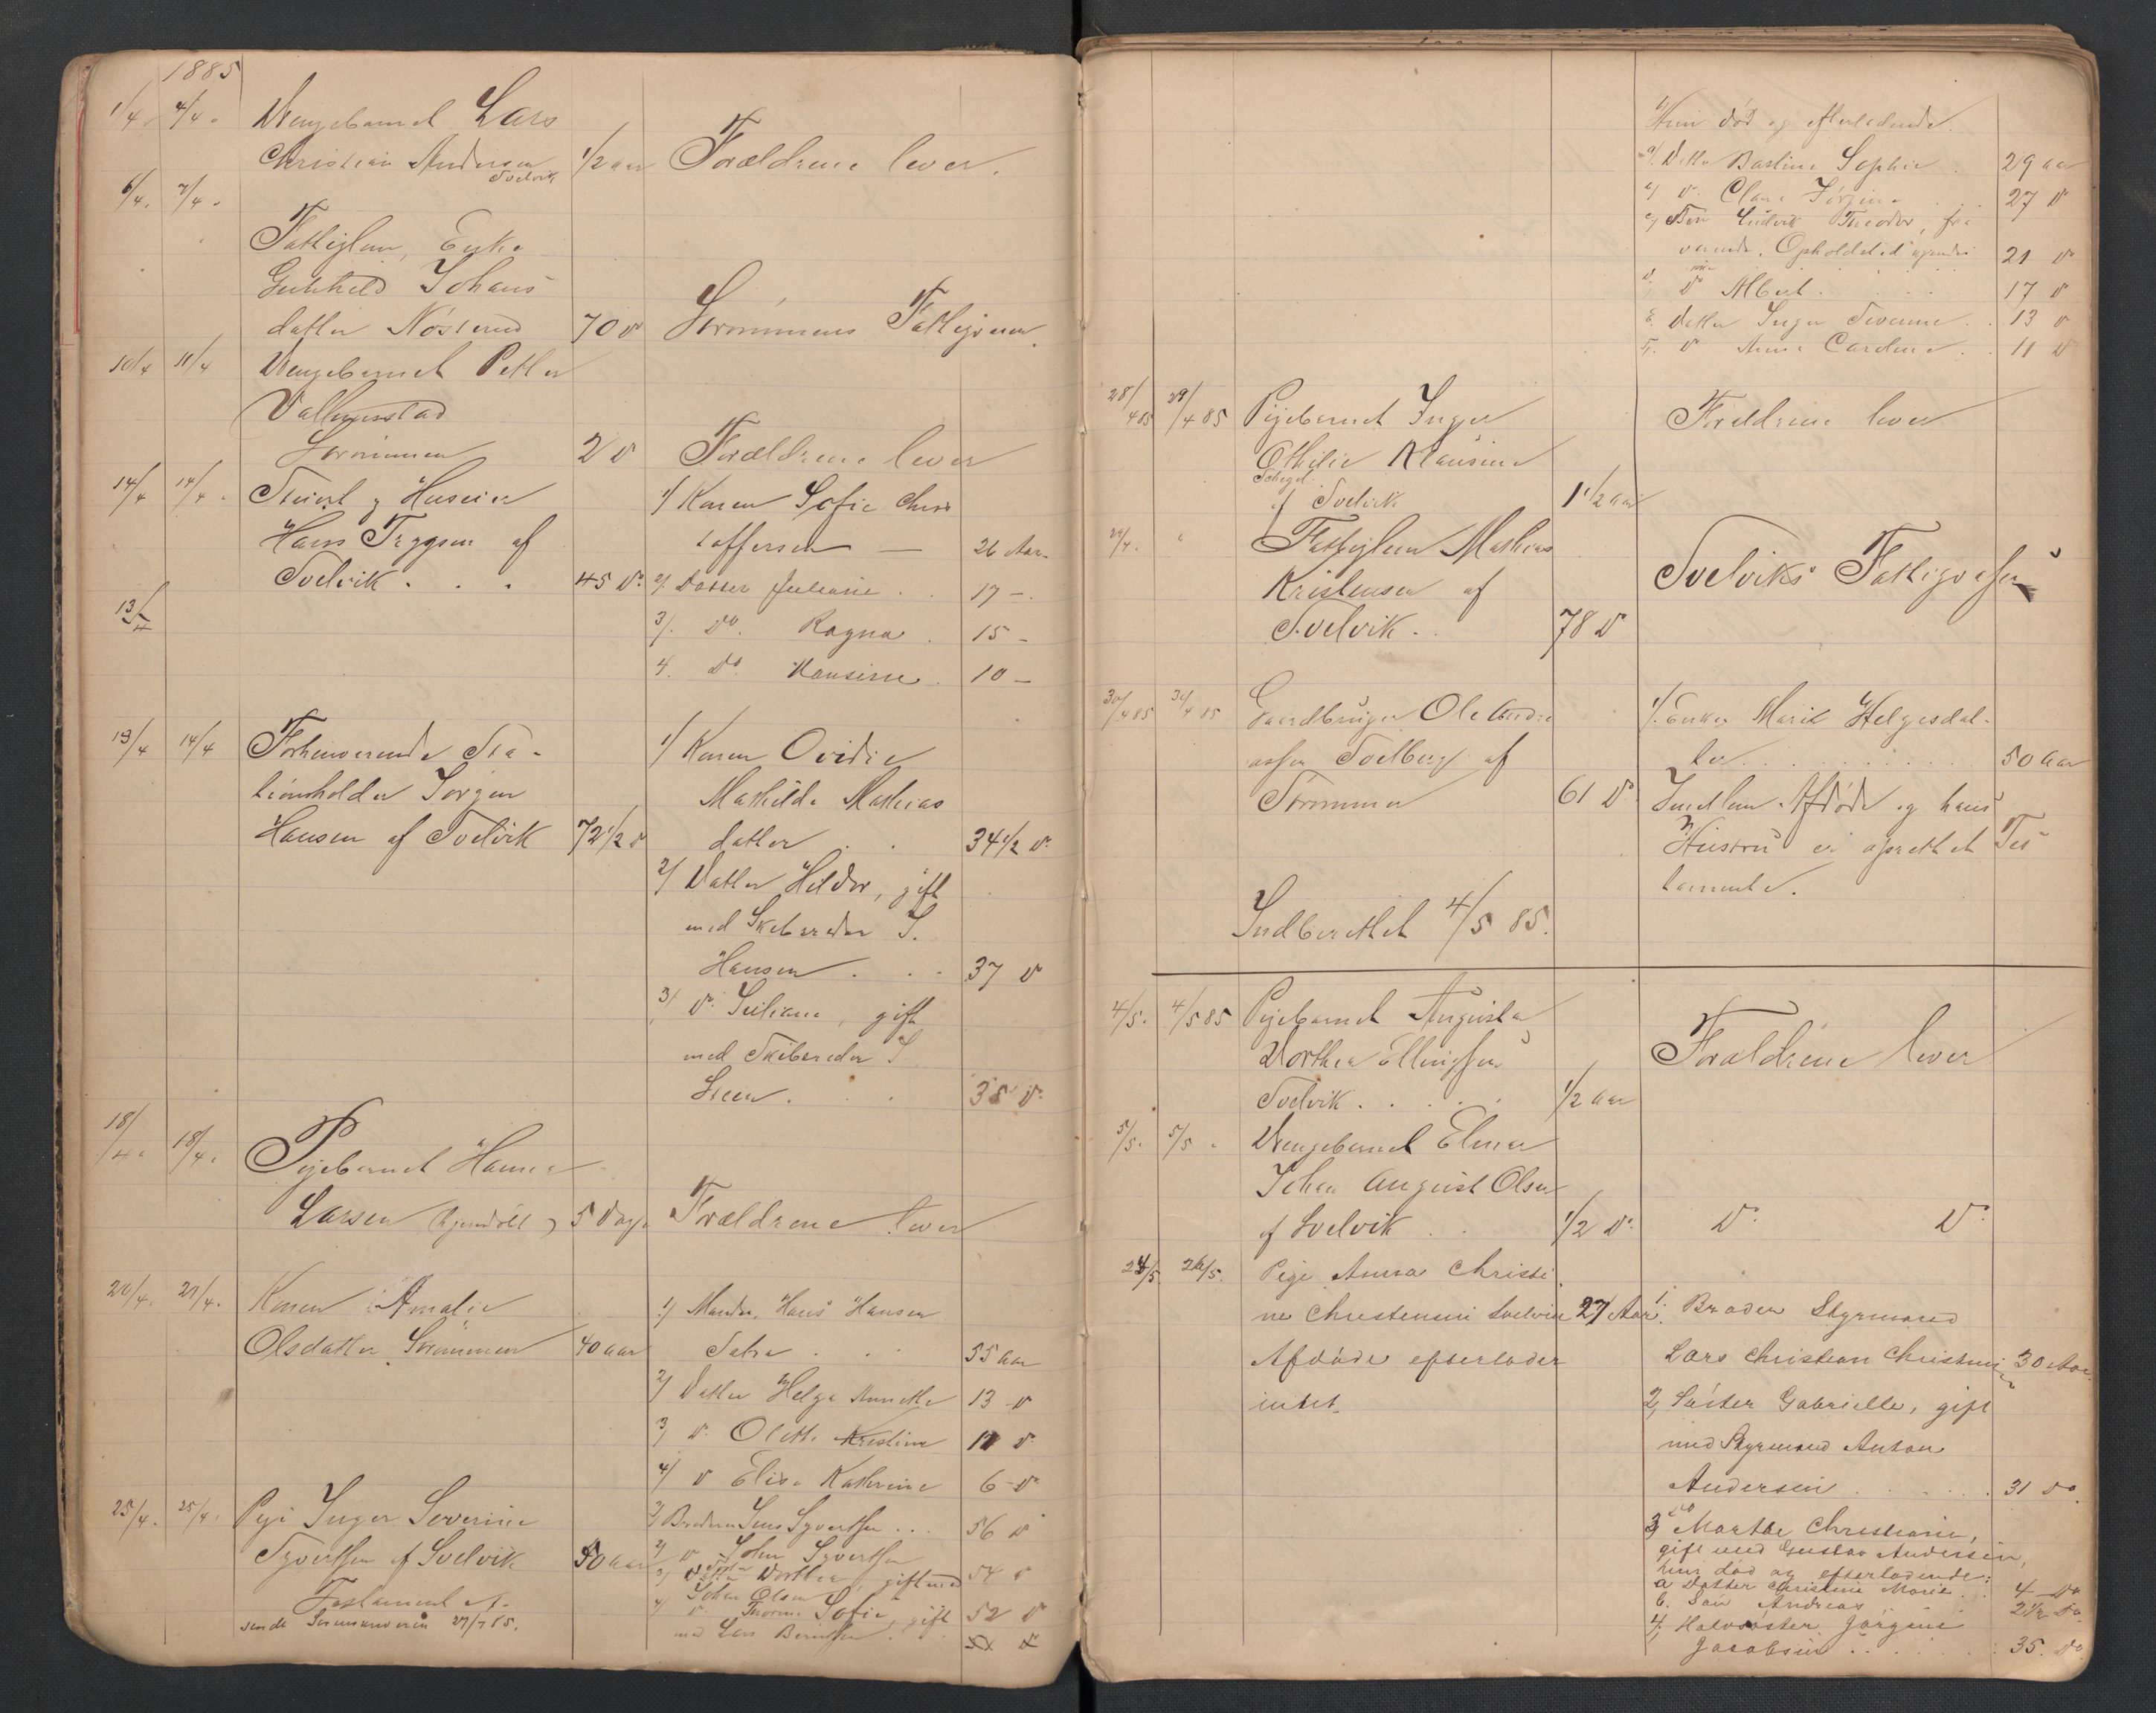 1885
1/4. 4/4. Drengebarnet Lars
Christian Andersen 1/2 aar Forældrene lever.
Svelvik
6/4. 7/4.
Fattiglem, Enke
Gunhild Johans
datter Nøsterud 70 do Strømmens Fattigvæsen.
10/4 11/4 Drengebarnet Petter
Strømmen 2 do Forældrene lever
14/4 14/4. Stuert og Huseier 1/ Konen Sofie Chris
Hans Tryggsen af toffersen — 26 Aar.
Svelvik . . . 45 Do. 2/ Datter Juliane . . 17 —
13/4
3/. Do. Ragna . 15 —
4. Do. Hansine . 10 —
13/4 14/4 Forhenværende Sta- 1/ Konen Ovidie
tionsholder Jørgen Mathilde Mathias
Hansen af Svelvik 72 1/2 do datter . . 34 1/2 Do.
2/ Datter Heldor, gift
med Skibsreder S.
Hansen . . . 37 Do
3/ Do. Juliane, gift
med Skibsreder S.
Steen . . . 35 Do.
18/4. 18/4. Pigebarnet Hanna
Larsen (hjemdøbt) 5 Dage Forældrene lever
20/4. 21/4. Konen Amalie 1/ Manden Hans Hansen
Olsdatter Strømmen 40 aar . . 55 aar
2/ Datter Helga Annette 13 do
3/ do. Olette Kristine 11 do
4/ do Elise Kathrine 6 do
25/4. 25/4. Pige Inger Severine 1/ Broderen Jens Syvertsen ... 56 do
Syvertsen af Svelvik 50 aar 2/ do John Syvertsen 54 do
3/ Søster Dorthea, gift med
Johan Olsen
Testament A. 4/ do. Sofie, gift 52 do
sendt Sorenskriveren 27/7 85. med Lars Berntsen
Hun død og efterladende.
a/. Datter Bastine Sophie . 29 aar
b/ do. Clara Jørgine . . . 27 do
c/ Søn Ludvik Theodor, fra
værende. Opholdsted ukjendt 21 do
d. do Albert . . . . 17 do
e. Datter Inger Severine . . 13 do
f. do Anna Caroline . . 11 do
28/4 85 29/4 85 Pigebarnet Inger Forældrene lever
Othilie Klausine
af Svelvik 1 1/2 aar
29/4. " Fattiglem Mathias
Kristensen af Svelviks Fattigvæsen
Svelvik . . 78 do
30/4 85 30/4 85 Gaardbruger Ole Andre 1/. Enken Marie Helgesdat-
assen Solberg af ter . . . . . . . . . 50 aar
Strømmen 61 do Imellem Afdøde og hans
Hustru er oprettet Tes
tamente.
Indberettet 4/5 85.
4/5. 4/5 85 Pigebarnet Augusta
Dorthea Ellingsen Forældrene lever
Svelvik . . . . . 1/2 aar
5/5. 5/5. Drengebarnet Elmar
Johan August Olsen
af Svelvik . . 1/2 Do. Do. Do.
24/5 26/5. Pige Anna Christi
ne Christensen Svelvik 27 Aar. 1. Broder Styrmand
Afdøde efterlader Lars Christian Christensen 30 Aar.
intet. 2, Søster Gabrielle, gift
med Styrmand Anton
Andersen . . . . . 31 Do.
3, do Marthe Christiane,
gift med Gustav Andersen,
hun død og efterladende:
a Datter Christine Marie . . 4 Do
b. Søn Andreas . . 2 1/2 Do.
4, Halvsøster Jørgine
Jacobsen . . . . . . 35. Do.